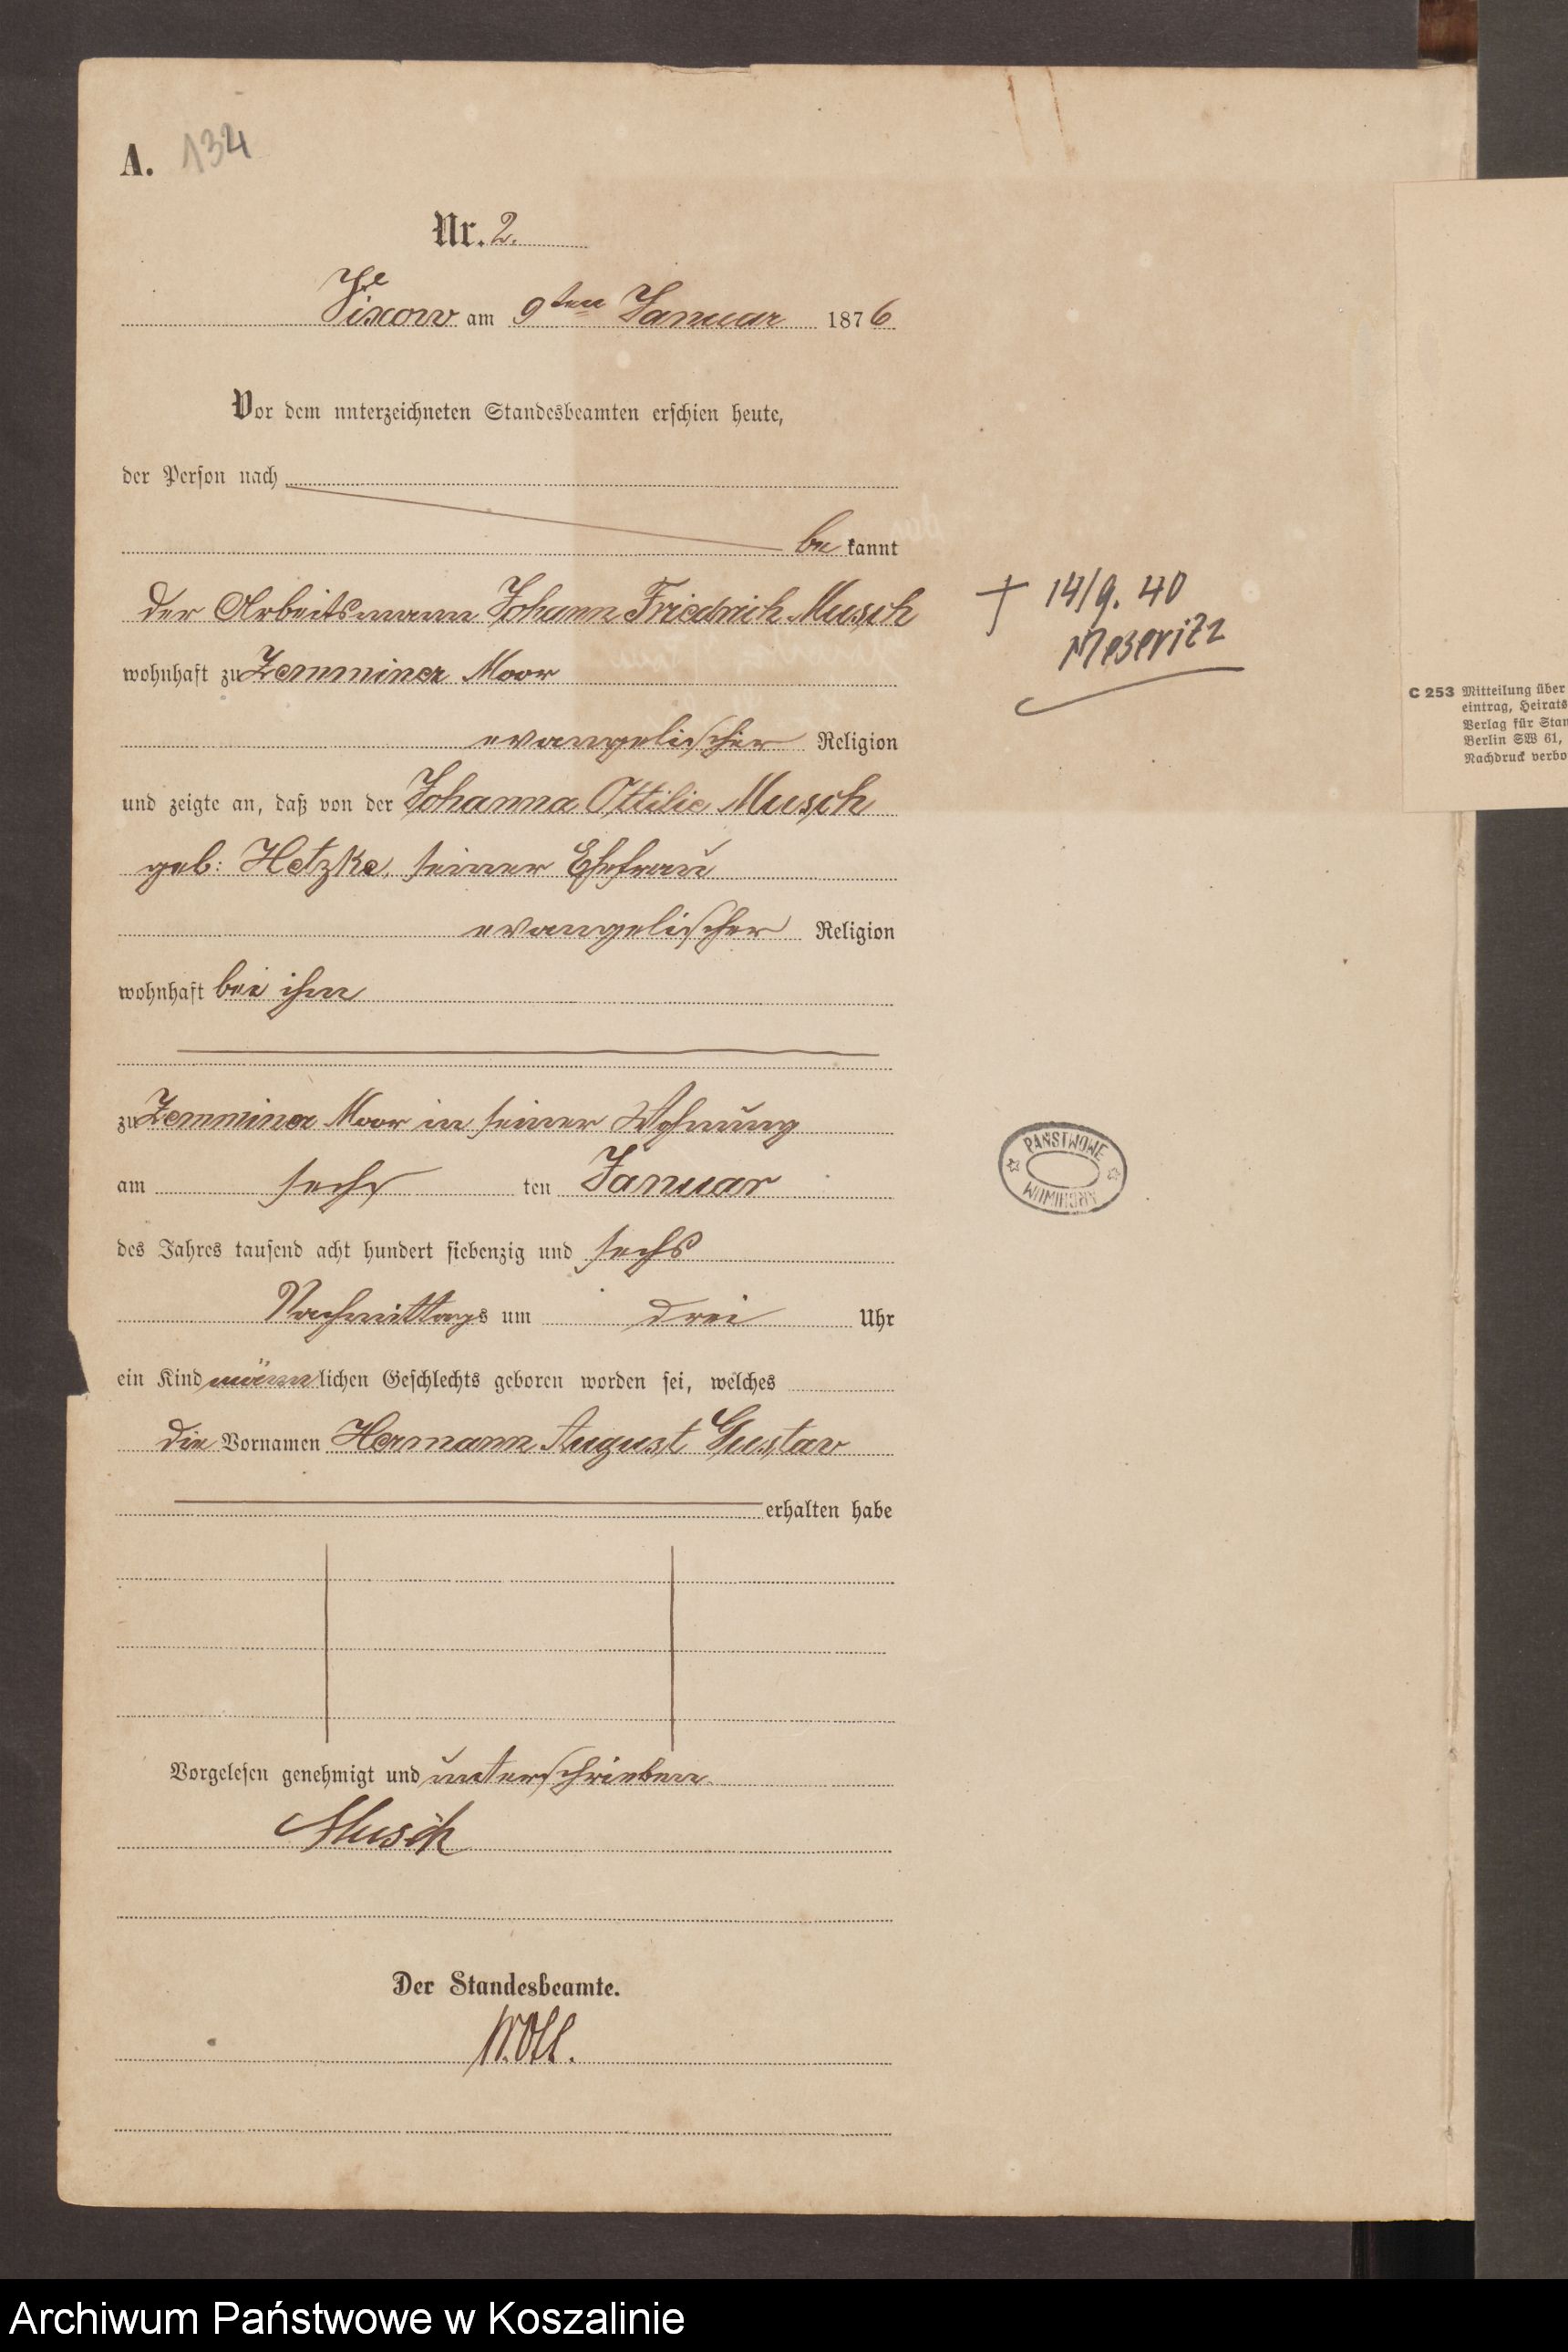 A. 134
Nr. 2.
Vixow am 9ten Januar 1876
Vor dem unterzeichneten Standesbeamten erschien heute,
der Person nach
be kannt
der Arbeitsmann Johann Friedrich Musch
wohnhaft zu Zemminer Moor
evangelischer Religion
und zeigte an, daß von der Johanna Ottilie Musch
geb: Hetzke, seiner Ehefrau
evangelischer Religion
wohnhaft bei ihm
zu Zemminer Moor in seiner Wohnung
am sechs ten Januar
des Jahres tausend acht hundert siebenzig und sechs
Nachmittags um drei Uhr
ein Kind männlichen Geschlechts geboren worden sei, welches
die Vornamen Hermann August Gustav
erhalten habe
Vorgelesen genehmigt und unterschrieben
Musch
Der Standesbeamte.
† 14/9. 40
Meseritz
PAŃSTWOWE
ARCHIWUM
C 253 Mitteilung über
eintrag, Heirats
Verlag für Stan
Berlin SW 61,
Nachdruck verbo
Archiwum Państwowe w Koszalinie